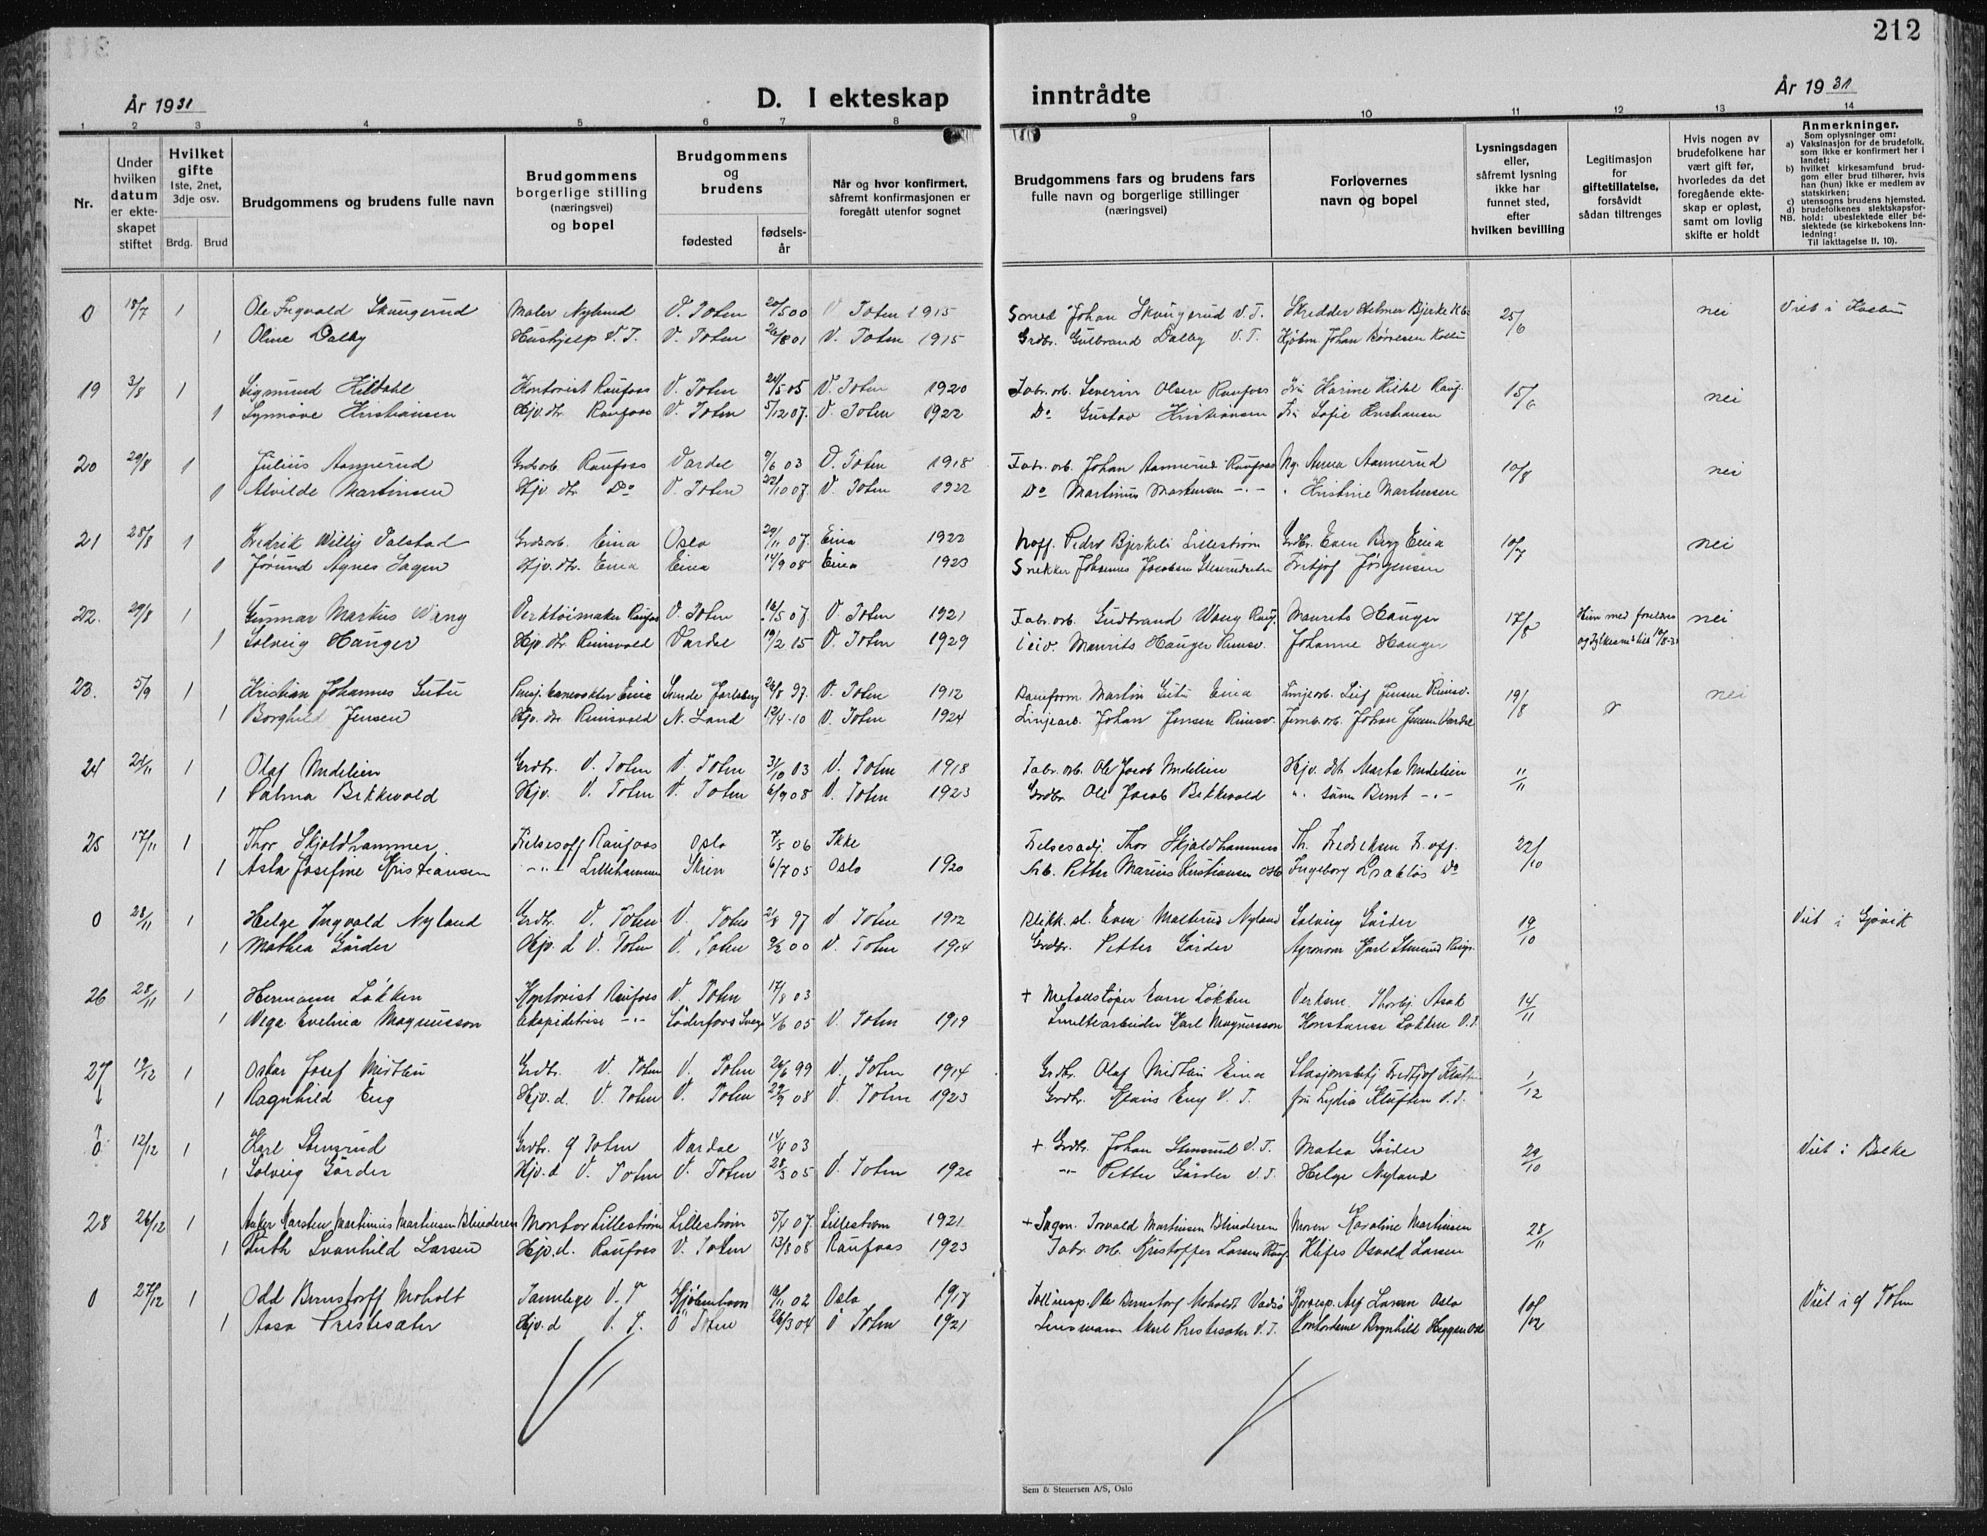 212
År 1931
D. I ekteskap inntrådte
År 1931
1 2 3 4 5 6 7 8 9 10 11 12 13 14
Nr.
Under hvilken datum er ekteskapet stiftet
Hvilket gifte 1ste, 2net, 3dje osv.
Brdg. Brud
Brudgommens og brudens fulle navn
Brudgommens borgerlige stilling (næringsvei) og bopel
Brudgommens og brudens
fødested
fødselsår
Når og hvor konfirmert, såfremt konfirmasjonen er foregått utenfor sognet
Brudgommens fars og brudens fars fulle navn og borgerlige stillinger (næringsvei)
Forlovernes navn og bopel
Lysningsdagen eller, såfremt lysning ikke har funnet sted, efter hvilken bevilling
Legitimasjon for giftetillatelse, forsåvidt sådan tiltrenges
Hvis nogen av brudefolkene har vært gift før, hvorledes da det foregående ekteskap er opløst, samt om lovlig skifte er holdt
Anmerkninger.
Som oplysninger om:
a) Vaksinasjon for de brudefolk, som ikke er konfirmert her i landet;
b) hvilket kirkesamfund brudgom eller brud tilhører, hvis han (hun) ikke er medlem av statskirken;
c) utensogns brudens hjemsted.
d) brudefolkenes slektskapsforhold: ubeslektede eller beslektede (se kirkebokens innledning:
NB. Til iakttagelse II, 10).
0 18/7 1 Ole Ingvald Skaugerud Maler Nylund V. Toten 20/5 00 V Toten 1915 Smed Johan Skaugerud V.T. Skredder Helmer Bjerke 25/6 nei Viet i Kolbu
1 Oline Dalby Hushjelp V.T. V. Toten 26/8 01 V. Toten 1915 Grdbr. Gulbrand Dalby V.T. Kjøbm. Johan Børresen Kolbu
19 3/8 1 Sigmund Hildahl Kontorist Raufoss V. Toten 24/5 05 V. Toten 1920 Fabr. arb. Severin Olsen Raufoss Fru Karine Hildal Rauf. 15/6 nei
1 Synnøve Kristiansen Hjv. dtr. Raufoss V. Toten 5/12 07. V. Toten 1922 Do Gustav Kristiansen Fru Sofie Kristiansen
20 29/8 1 Julius Aannerud Grdsarb. Raufoss Vardal 9/6 03 V. Toten 1918 Fabr. arb. Johan Aannerud Raufoss Ng. Anna Aannerud 10/8 nei
1 Alvilde Martinsen Hjv. dtr. Do V. Toten 22/10 07. V. Toten 1922 Do Martinus Martinsen -"- " Kristine Martinsen
21 28/8 1 Fredrik Willy Talstad Grdsarb. Eina Oslo 29/11 07. Eina 1922 Pedro Bjerkeli Lillestrøm Grdbr. Even Berg Eina 10/7 nei
1 Jørund Agnes Hagen Hjv. dtr. Eina Eina 14/9 08 Eina 1923 Snekker Johannes Jacobsen Fritjof Jørgensen
22. 29/8 1 Gunnar Markus Wang Verktøimaker Raufoss V. Toten 16/5 07. V. Toten 1921 Fabr. arb. Gudbrand Wang Rauf. Maurits Hauger 17/8 Hun med foreldres nei
1 Solveig Hauger Hjv. dtr. Reinsvold Vardal 19/2 15 V. Toten 1929 Maurits Hauger Reinsv. Johanne Hauger
23. 5/9 1 Kristian Johannes Sutu Eina Sande Jarlsberg 26/8 97. V. Toten 1912 Baneform. Martin Sutu Eina Linjearb. Leif Jensen Reinsv. 19/8 nei
1 Borghild Jensen Hjv. dtr. Reinsvold N. Land 12/4 10 V. Toten 1924 Linjearb. Johan Jensen Reinsv. Jernb. arb. Johan Jensen Vardal
24 21/11 1 Olaf Mdelien Grdbr. V. Toten V. Toten 31/10 03 V. Toten 1918 Fabr. arb. Ole Jacob Mdelien Hjv. dtr. Marta Mdelien 11/11
1 Palma Bekkevold Hjv. V. Toten V. Toten 6/9 08 V. Toten 1923 Grdbr. Ole Jacob Bekkevold
25 17/11 1 Thor Skjoldhammer Frelsesoff. Raufoss Oslo 7/5 06 Ikke Frelsesadj. Thor Skjoldhammer Th. Fredriksen Fr. off. 22/10
1 Asla Josefine Kristiansen -"- Lillehammer Skien 6/7 05 Oslo 1920 Arb. Petter Marius Kristiansen Oslo Ingeborg Do
0 28/11 1 Helge Ingvald Nyland Grdbr. V. Toten V. Toten 2/8 97 V Toten 1912 Even Nyland Solveig Gårder 19/10 Viet i Gjøvik
1 Mathea Gårder Hjv. d V. Toten V. Toten 00 V. Toten 1914 Grdbr. Petter Gårder Agronom Karl Stensrud
26 28/11 1 Hermann Løkken Kontorist Raufoss V. Toten 17/8 03 + Metallstøper Even Løkken Verksm. Thorbj. Asak 14/11
1 Wega Evelina Magnusson Ekspeditrise -"- Söderfors Sverige 4/6 05 V. Toten 1919 Smeltearbeider Karl Magnusson Konstanse Løkken V.T.
27 19/12 1 Oskar Josef Midtlien Grdbr. V. Toten V. Toten 24/6 99 V. Toten 1914 Grdbr. Olaf Midtlien Eina Stasjonsbetj. Fredtjof Kluften 1/12
1 Ragnhild Eng Hjv. d. V. Toten V. Toten 29/9 08 V. Toten 1923 Grdbr. Klaus Eng V. T. fru Lydia Kluften V.T.
0 12/12 1 Karl Stensrud Grdbr. Ø Toten Vardal 14/4 03 + Grdbr. Johan Stensrud V.T. Matea Gårder 29/10 Viet i Balke
1 Solveig Gårder Hjv. d V. Toten V. Toten 28/3 05 V. Toten 1920 -"- Petter Gårder V.T. Helge Nyland
28 26/12 1 Karsten Martinius Martinsen Blinderen Montør Lillestrøm Lillestrøm 5/4 07. Lillestrøm 1921 + Torvald Martinsen Blinderen Moren Karoline Martinsen 28/11
1 Ruth Svanhild Larsen Hjv. d. Raufoss V. Toten 13/8 08 Raufoss 1923 Fabr. arb. Kristoffer Larsen Rauf. Osvald Larsen
0 27/12 1 Odd Bernstorff Moholt Tannlege V. T Kjøbenhavn 16/11 02 Oslo 1917 Tollinsp. Ole Bernstorf Moholdt Vadsø Alf Larsen Oslo 10/12 Viet i Ø Toten
1 Aasa Prestesæter Hjv. d V. T. V Toten 26/3 04 V Toten 1921 Lensmann Prestesæter V.T. Kontordame Brynhild Heggen Oslo
Sem & Stenersen A/S, Oslo